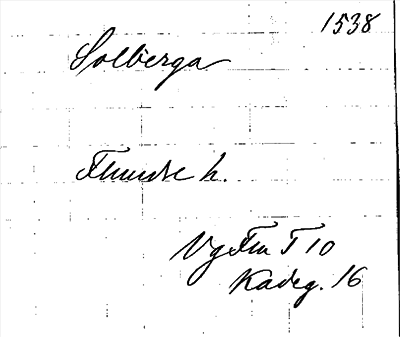 1538
Solberga
Flundre h.
Vg Fln T 10
Kadeg. 16